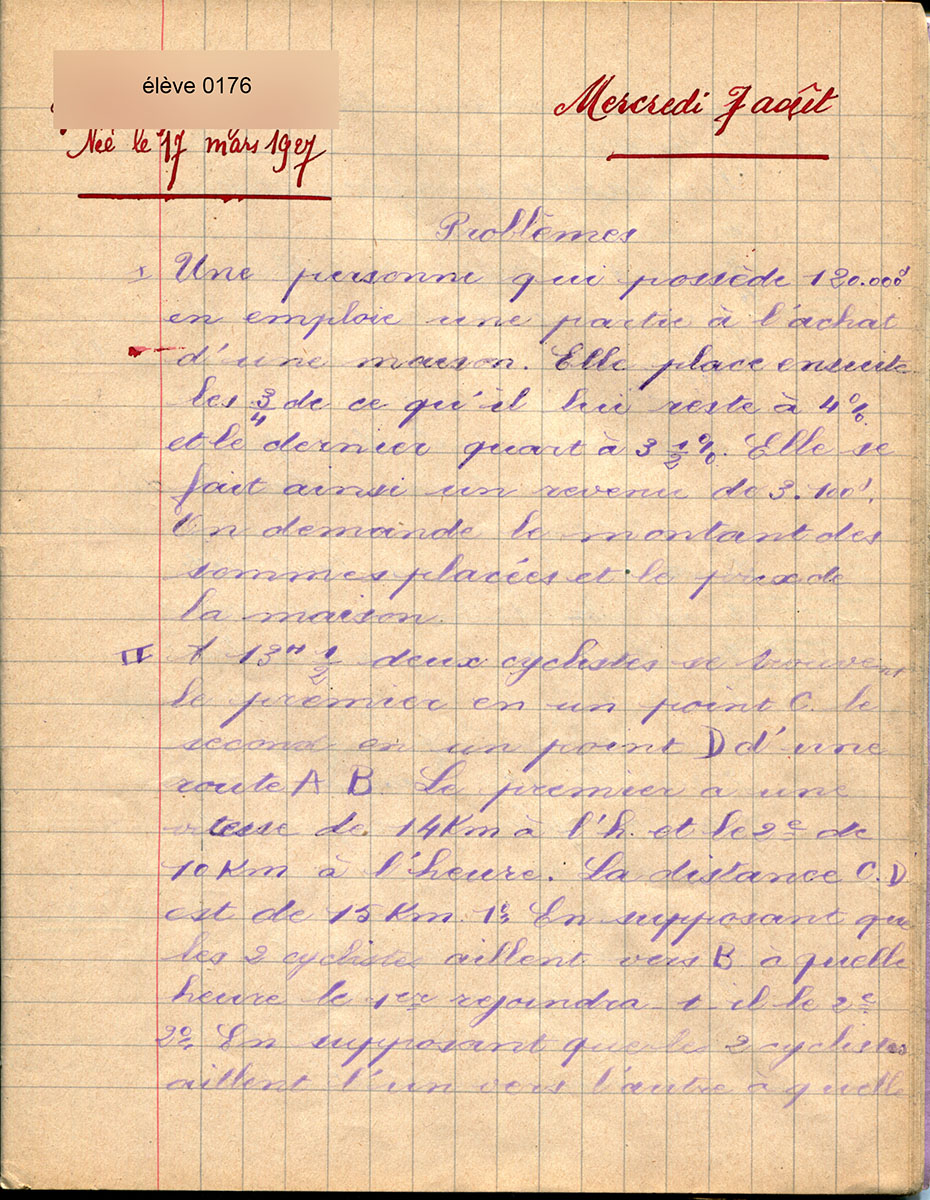 élève 0176
Née le 17 mars 1927
Mercredi 7 août
Problèmes
I Une personne qui possède 120.000f
en emploie une partie à l'achat
d'une maison. Elle place ensuite
les 3/4 de ce qu'il lui reste à 4%
et le dernier quart à 3 1/2 %. Elle se
fait ainsi un revenu de 3.100f.
On demande le montant des
sommes placées et le prix de
la maison.
II A 13H 1/2 deux cyclistes se trouvent
le premier en un point C. le
second en un point D d'une
route A B Le premier a une
vitesse de 14 Km à l'h. et le 2e de
10 Km à l'heure. La distance C.D
est de 15 Km. 1º En supposant que
les 2 cyclistes aillent vers B à quelle
heure le 1er rejoindra-t-il le 2e
2º En supposant que les 2 cyclistes
aillent l'un vers l'autre à quelle